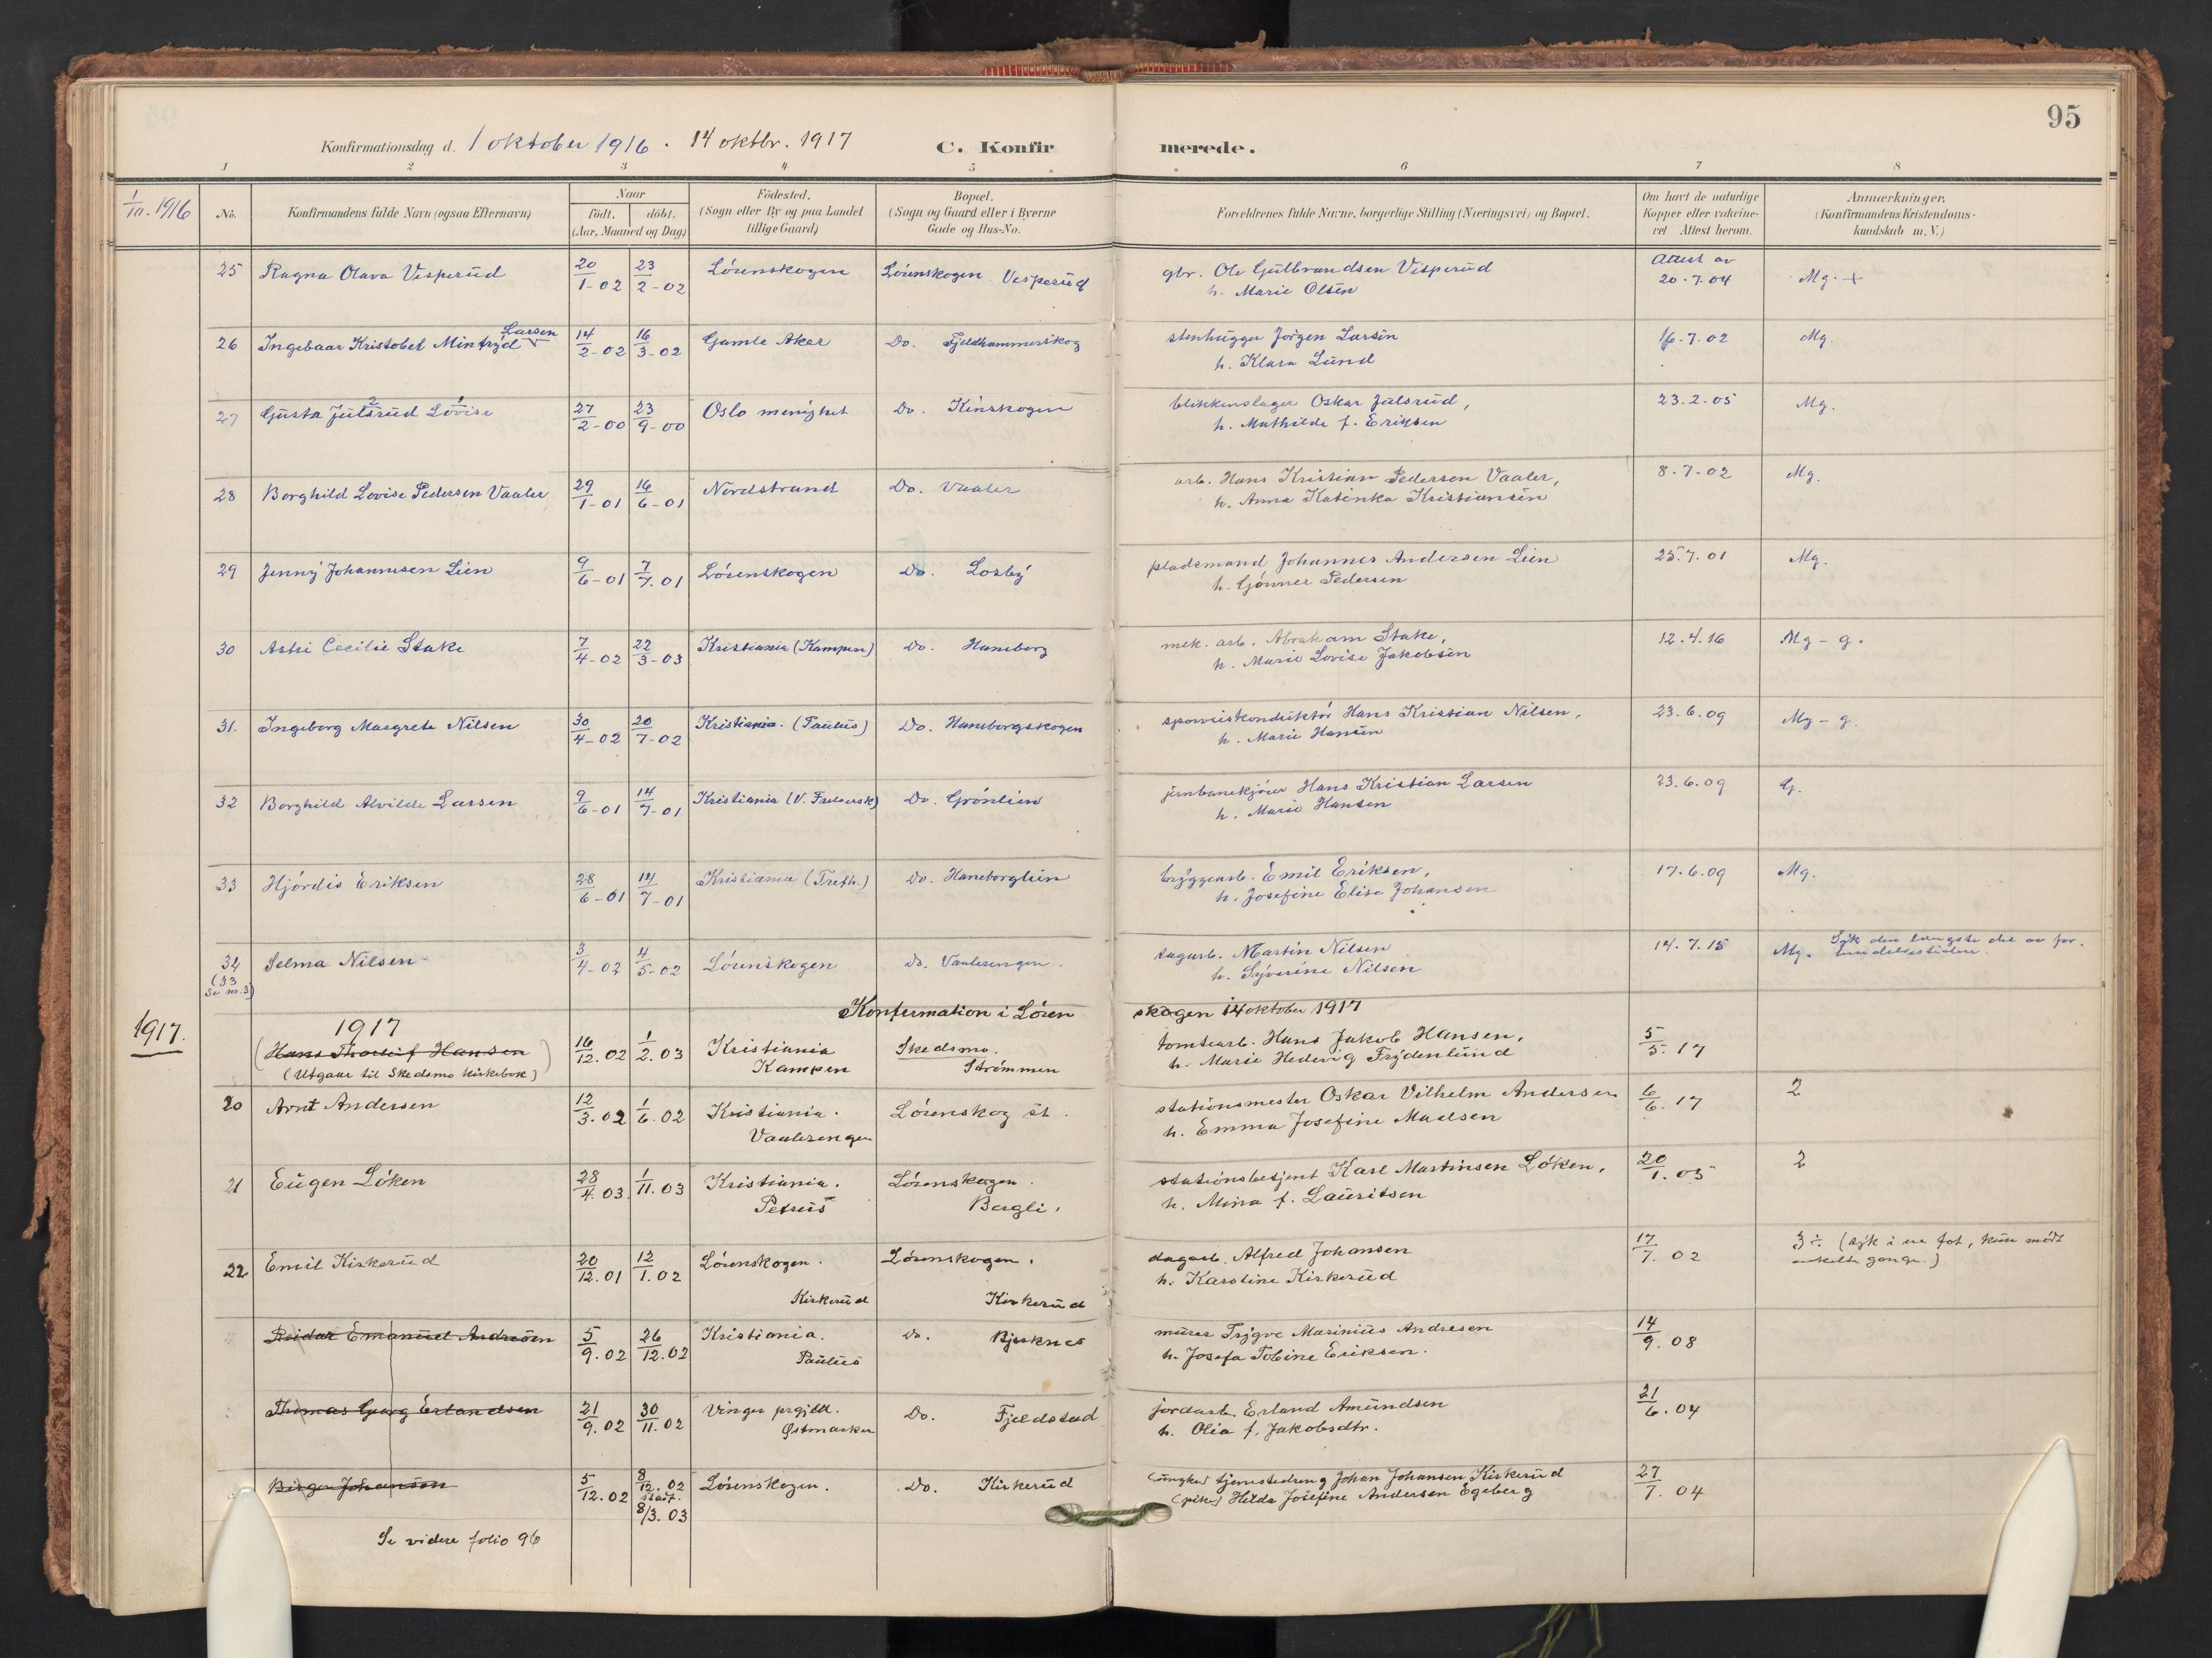 95
Konfirmationsdag d. 1 oktober 1916 . 14 oktbr. 1917 C. Konfirmerede.
1 2 3 4 5 6 7 8
1/10. 1916
No.
Konfirmandens fulde Navn (ogsaa Efternavn)
Naar
födt. döbt.
(Aar, Maaned og Dag)
Födested.
(Sogn eller By og paa Landet
tillige Gaard)
Bopæl.
(Sogn og Gaard eller i Byerne
Gade og Hus-No.
Forældrenes fulde Navne, borgerlige Stilling (Næringsvei) og Bopæl.
Om havt de naturlige
Kopper eller vakcine-
ret Attest herom.
Anmærkninger,
(Konfirmandens Kristendoms-
kundskab m. V.)
25 Ragna Olava Vesperud 20/1-02 23/2-02 Lörenskogen Lörenskogen Vesperud gbr. Ole Gulbrandsen Visperud Attest av 20.7.04 Mg. +
h. Marie Olsen
26 Ingebaar Kristobel Mintryd Larsen 14/2-02 16/3-02 Gamle Aker Do. Fjeldhammerskog stenhugger Jörgen Larsen 16.7.02 Mg.
h. Klara Lund
27 Gusta Julsrud 2 Lovise 1 27/2-00 23/9-00 Oslo menighet Do. Kinskogen blikkenslager Oskar Julsrud, 23.2.05 Mg.
h. Mathilde f. Eriksen
28 Borghild Lovise Pedersen Vaaler 29/1-01 16/6-01 Nordstrand Do. Vaaler arb. Hans Kristian Pedersen Vaaler, 8.7-02 Mg.
h. Anna Katinka Kristiansen
29 Jenny Johannesen Lien 9/6-01 7/7.01 Lörenskogen Do. Losby pladsmand Johannes Andersen Lien 25.7.01 Mg.
h. Gönner Pedersen
30 Astri Cecilie Stake 7/4-02 22/3-03 Kristiania (Kampen) Do. Haneborg mek. arb. Abraham Stake, 12.4.16 Mg - g.
h. Marie Lovise Jakobsen
31. Ingeborg Margrete Nilsen 30/4-02 20/7-02 Kristiania. (Paulus) Do. Haneborgskogen sporveiskonduktör Hans Kristian Nilsen, 23.6.09 Mg - g.
h. Marie Hansen
32 Borghild Alvilde Larsen 9/6-01 14/7-01 Kristiania (V. Frelsersk) Do. Grönlien jernbanekjörer Hans Kristian Larsen 23.6.09 G.
h. Marie Hansen
33 Hjördis Eriksen 28/6-01 14/7-01 Kristiania (Trefh.) Do. Haneborglien bryggearb. Emil Eriksen, 17.6.09 Mg.
h. Josefine Elise Johansen
34 Selma Nilsen 3/4-02 4/5-02 Lörenskogen Do. Vaalerengen. dagarb. Martin Nilsen 14.7.15 Mg. Syk den længste del av for-
(33 Se nr. 3) h. Syverine Nilsen
1917. 1917 Konfermation i Lörenskogen 14 oktober 1917
(Hans Thorleif Hansen) 16/12.02 1/2.03 Kristiania Skedsmo. tomtearb. Hans Jakob Hansen, 5/5.17
(Utgaar til Skedsmo kirkebok) Kampen Strömmen h. Marie Hedevig Frydenlund
20 Arnt Andersen 12/3.02 1/6.02 Kristiania. Lörenskog st. stationsmester Oskar Vilhelm Andersen 6/6.17 2
Vaalerengen h. Emma Josefine Madsen
21 Eugen Löken 28/4.03 1/11.03 Kristiania. Lörenskogen. stationsbetjent Karl Martinsen Löken, 20/1.05 2
Petrus Bergli. h. Mina f. Lauritsen
22 Emil Kirkerud 20/12.01 12/1.02 Lörenskogen. Lörenskogen. dagarb. Alfred Johansen 17/7.02 3÷ (syk i en fot, kun mödt
Kirkerud Kirkerud h. Karoline Kirkerud enkelte gange.)
Reidar Emanuel Andresen 5/9.02 26/12.02 Kristiania. Do. Bjerknes murer Trygve Marinius Andresen 14/9.08
Paulus h. Josefa Tobine Eriksen.
Thomas Georg Erlandsen 21/9.02 30/11.02 Vinger prgjld. Do. Fjeldstad jordarb. Erland Amundsen 21/6.04
Østmarker h. Olia f. Jakobsdtr.
Birger Johansen 5/12.02 8/12.02 Lörenskogen. Do. Kirkerud (ungkar) tjenestedreng Johan Johansen Kirkerud 27/7.04
stadf. 8/3.03 (pike) Hilda Josefine Andersen Egeberg
Se videre folio 96